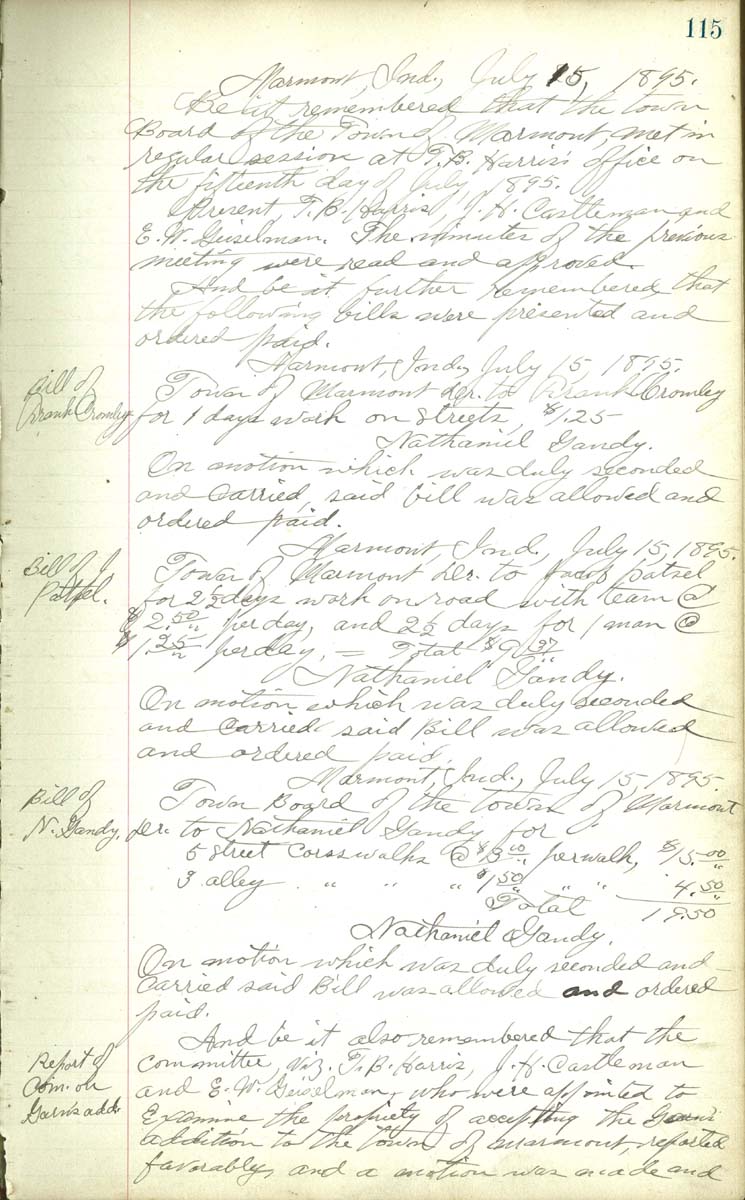 115
Marmont, Ind., July 15, 1895.
Be it remembered that the town
Board of the Town of Marmont, met in
regular session at T.B. Harris' office on
the fifteenth day of July, 1895.
Present, T.B. Harris, J.H. Castleman and
E.W. Geiselman. The minutes of the previous
meeting were read and approved.
And be it further remembered, that
the following bills were presented and
ordered paid.
Marmont, Ind., July 15, 1895.
Bill of
Frank Cromley
Town of Marmont Dr. to Frank Cromley
for 1 days work on streets, $1.25
Nathaniel Gandy.
On motion which was duly seconded
and Carried, said bill was allowed and
ordered paid.
Marmont, Ind., July 15, 1895.
Bill of J.
Patsel.
Town of Marmont Dr. to Jacob Patsel
for 2 1/2 days work on road with team @
$2.50 per day, and 2 1/2 days for 1 man @
$1.25 per day, = Total $9.37
Nathaniel Gandy.
On motion which was duly seconded
and Carried said Bill was allowed
and ordered paid.
Marmont, Ind., July 15, 1895.
Bill of
N. Gandy.
Town Board of the town of Marmont
Dr. to Nathaniel Gandy for
5 Street Corsswalks @ $3.00 per walk, $15.00
3 alley " " " $1.50 " " 4.50
Total 19.50
Nathaniel Gandy.
On motion which was duly seconded and
Carried said Bill was allowed and ordered
paid.
And be it also remembered that the
Report of
Com. on
Garn's add.
committee, viz. T.B. Harris, J.H. Castleman
and E.W. Geiselman, who were appointed to
Examine the propriety of accepting the Garn's
addition to the town of marmont, reported
favorably, and a motion was made and